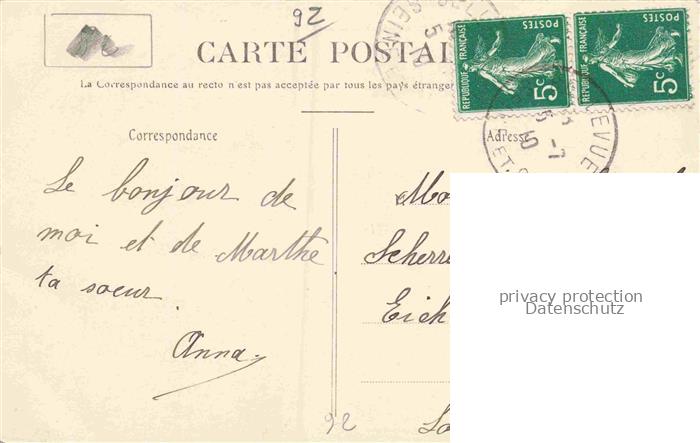 92
CARTE POSTAL
La Correspondance au recto n'est pas acceptée par tous les pays étranger
RÉPUBLIQUE FRANÇAISE
POSTES
5c
RÉPUBLIQUE FRANÇAISE
POSTES
5c
EVUE
ET
Correspondance
Adresse
Le bonjour de
moi et de Marthe
ta soeur.
Anna.
Mo
Scherre
Eich
privacy protection
Datenschutz
92